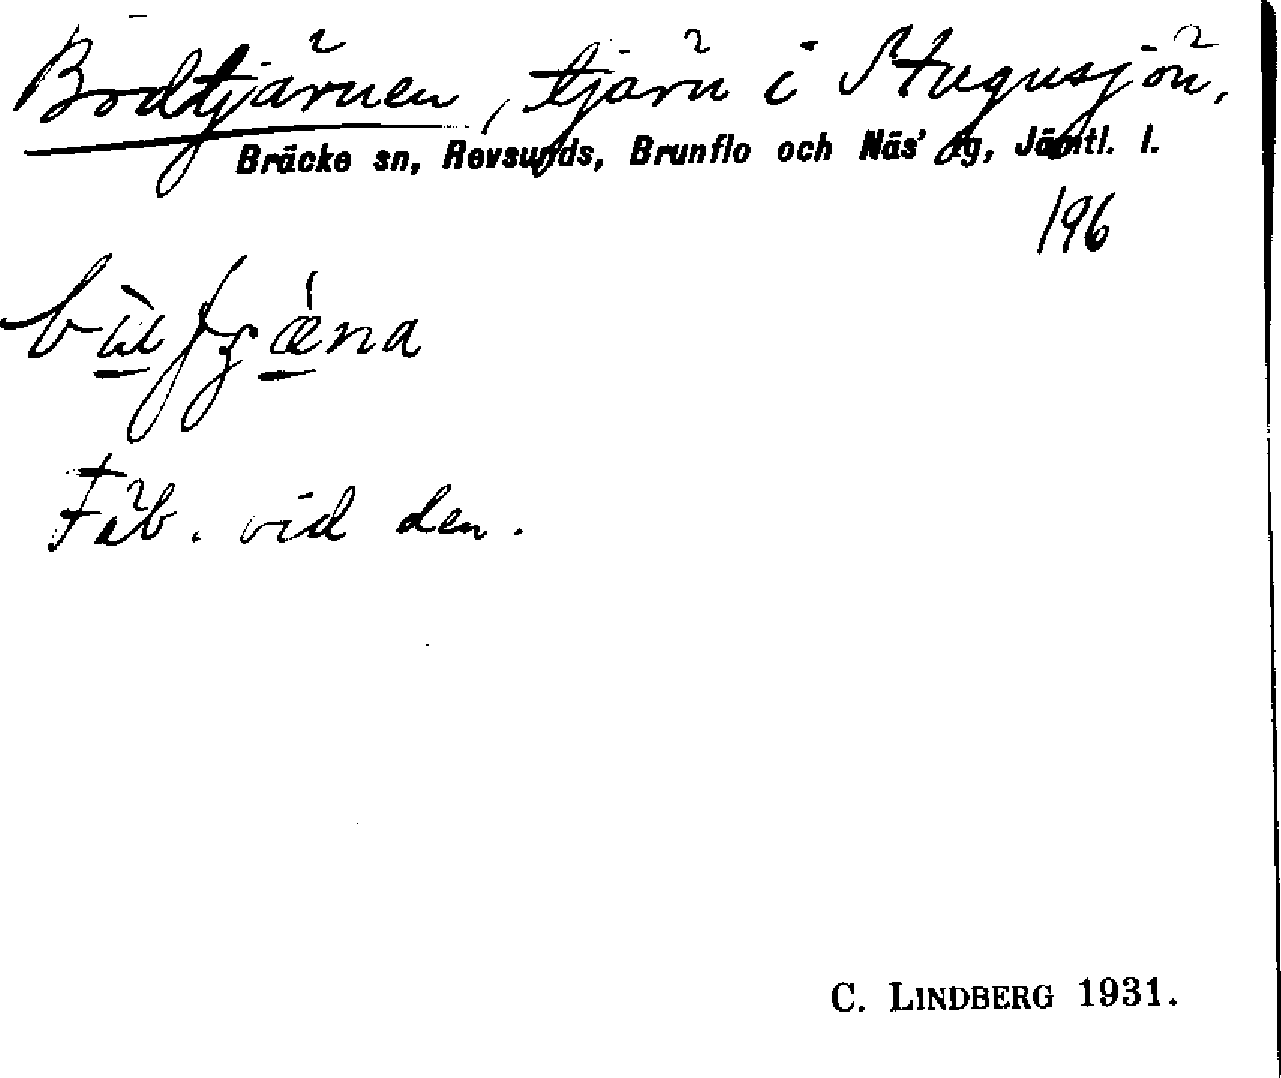 Bodtjärnen, tjärn i Stugusjön,
Bräcke sn, Revsunds, Brunflo och Näs' tg, Jämtl. l.
196
Fäb. vid den.
C. LINDBERG 1931.